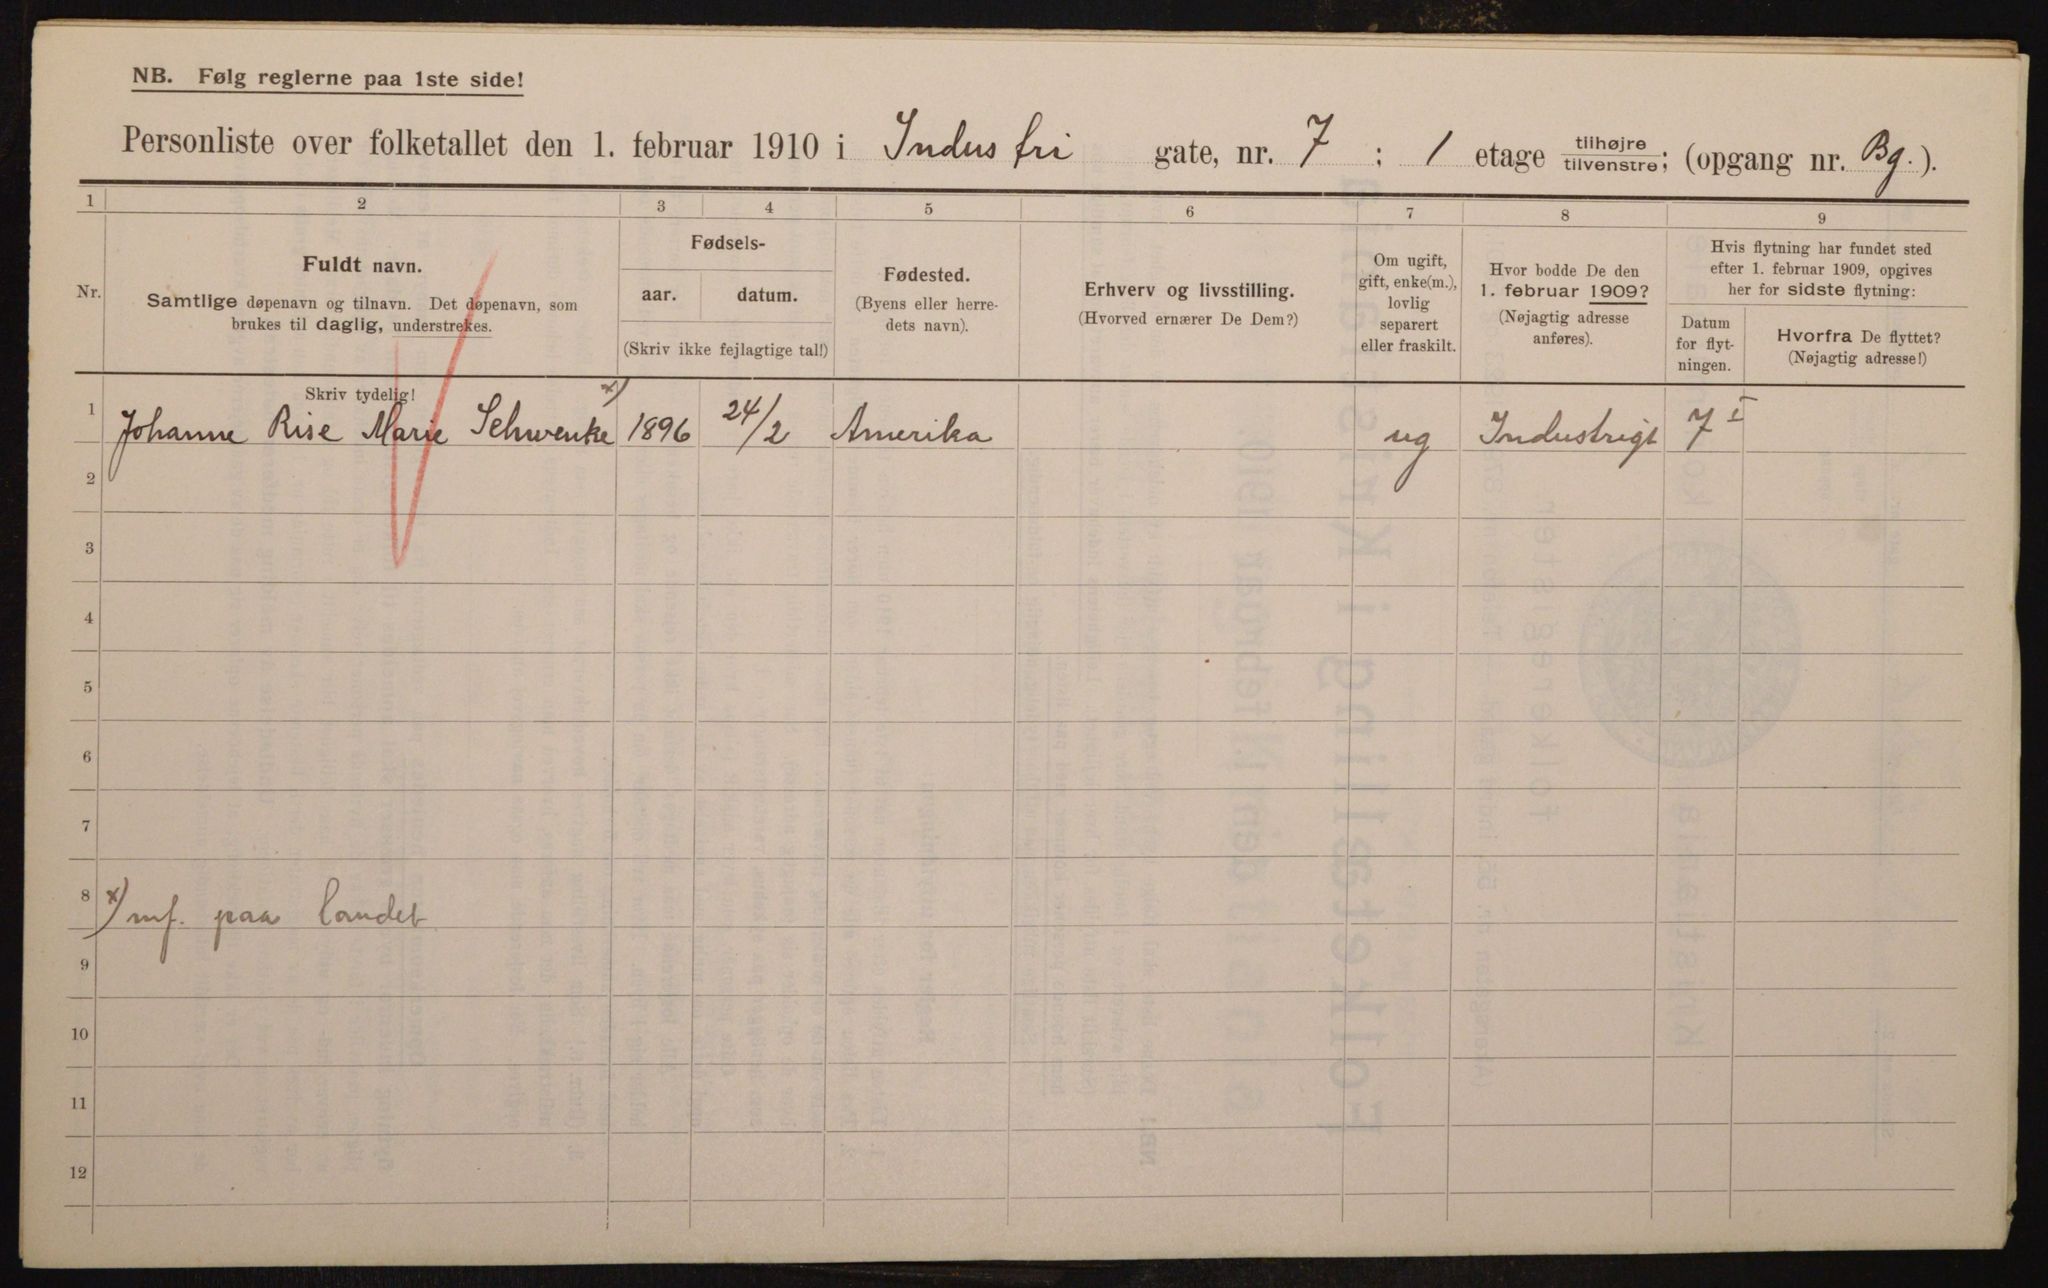 NB. Følg reglerne paa 1ste side!
Personliste over folketallet den 1. februar 1910 i Industri gate, nr. 7 ; 1 etage tilhøjre / tilvenstre; (opgang nr. Bg.).
1 2 3 4 5 6 7 8 9
Nr.
Fuldt navn.
Samtlige døpenavn og tilnavn. Det døpenavn, som
brukes til daglig, understrekes.
Fødsels-
aar. datum.
(Skriv ikke fejlagtige tal!)
Fødested.
(Byens eller herre-
dets navn).
Erhverv og livsstilling.
(Hvorved ernærer De Dem?)
Om ugift,
gift, enke(m.),
lovlig
separert
eller fraskilt.
Hvor bodde De den
1. februar 1909?
(Nøjagtig adresse
anføres).
Hvis flytning har fundet sted
efter 1. februar 1909, opgives
her for sidste flytning:
Datum
for flyt-
ningen.
Hvorfra De flyttet?
(Nøjagtig adresse!)
Skriv tydelig!
1 Johanne Rise Marie Schwenke x) 1896 24/2 Amerika ug Industrigt 7 I
2
3
4
5
6
7
8 x) mf. paa landet
9
10
11
12